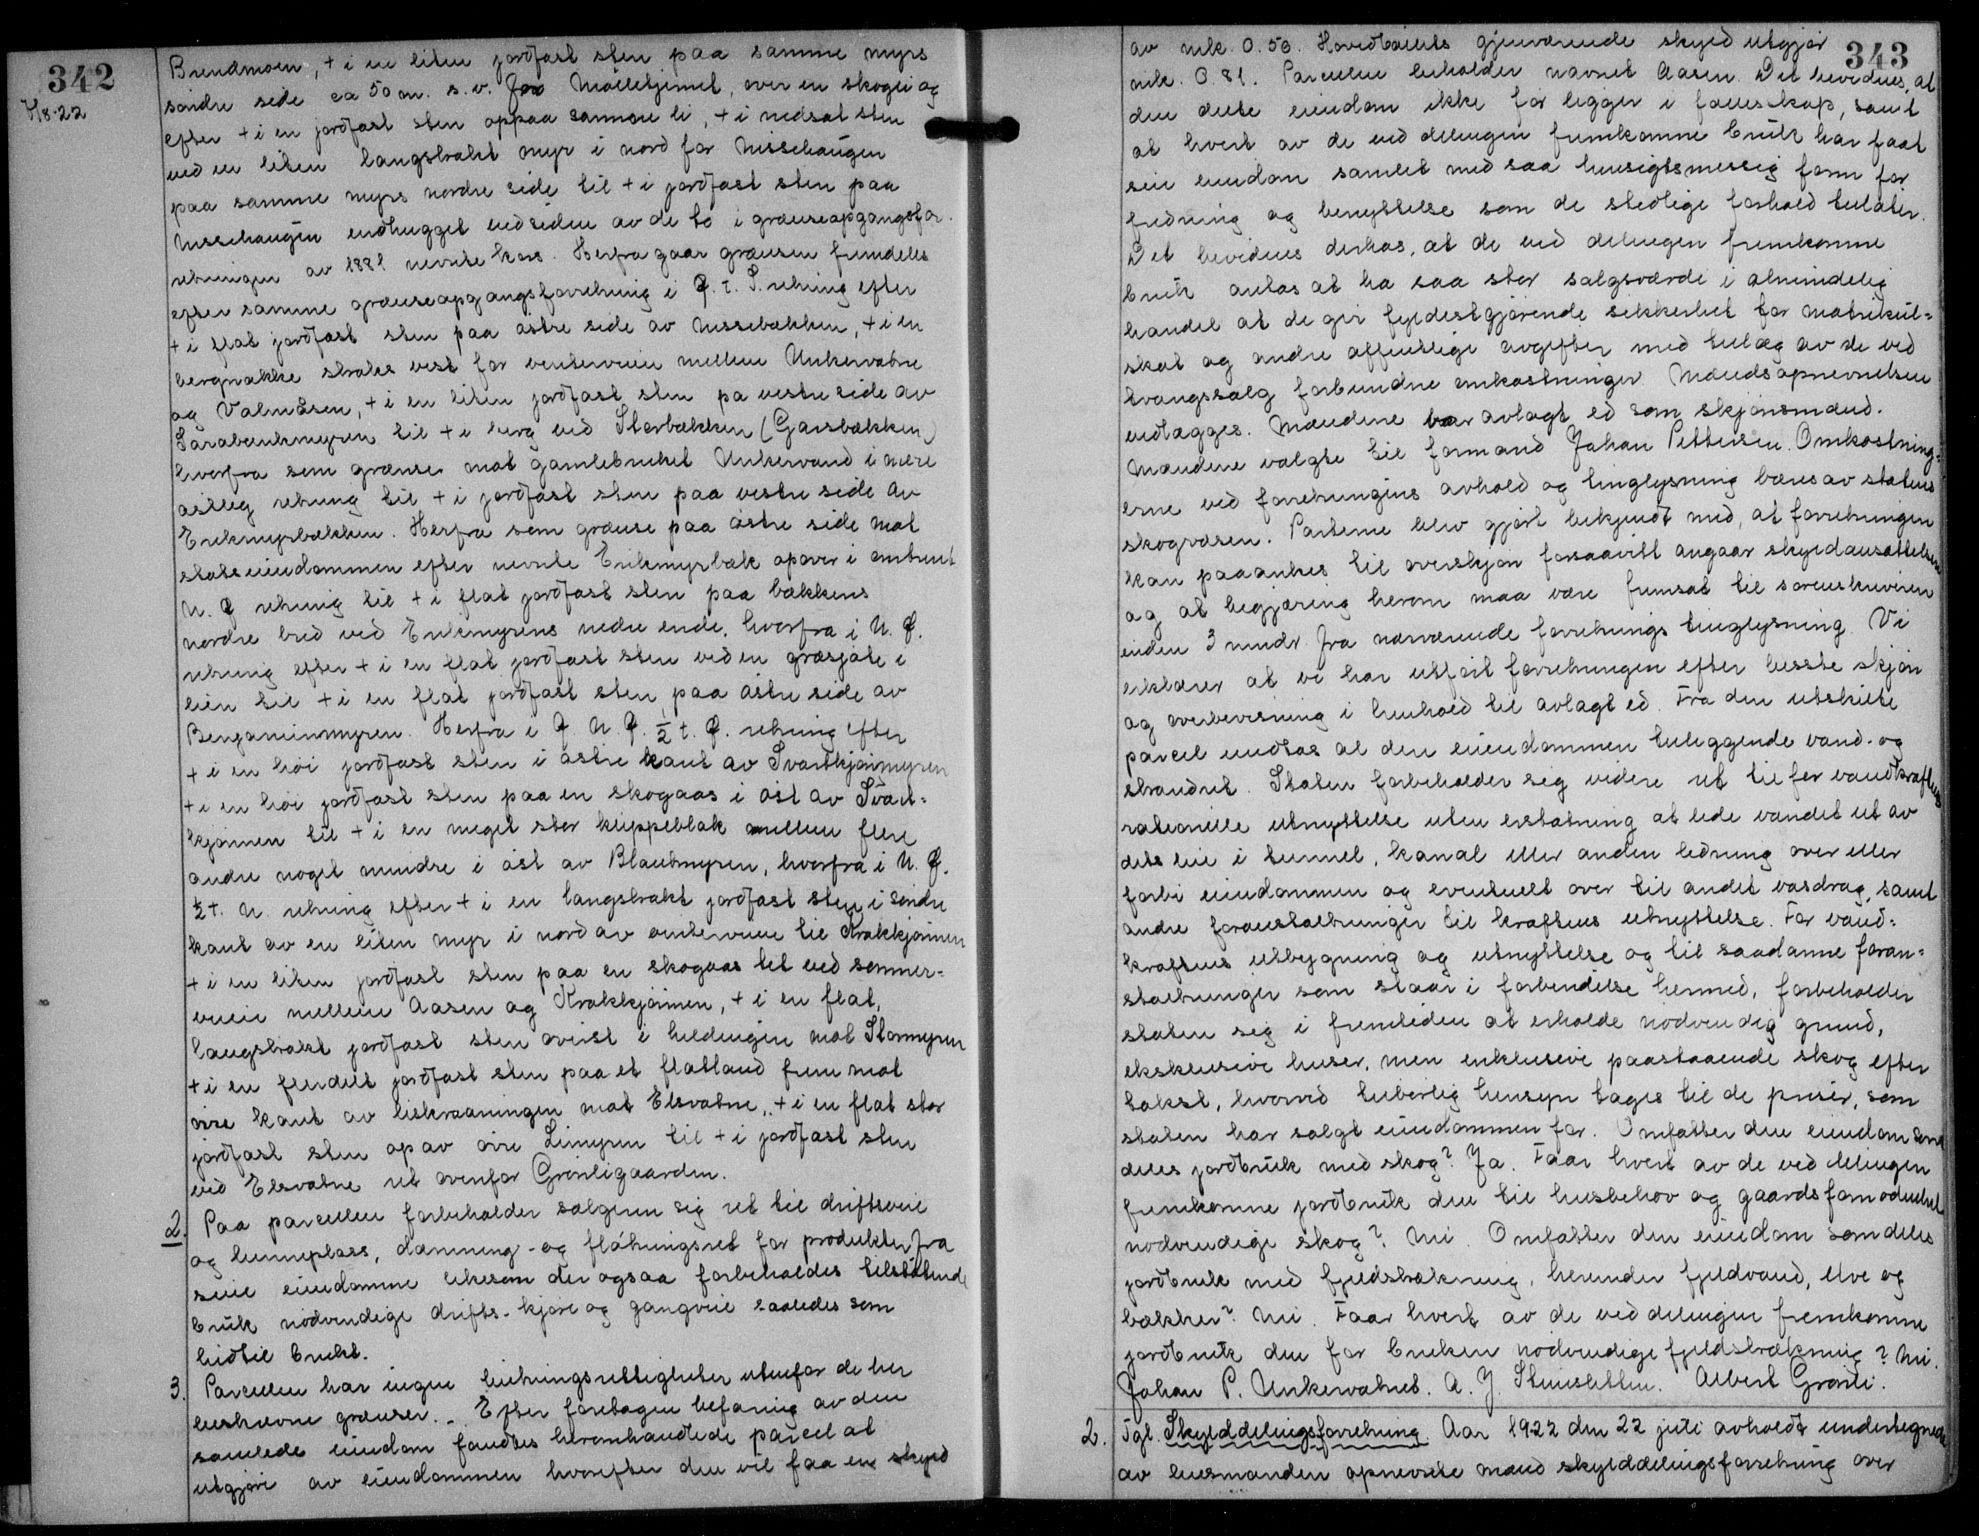 342
7/8-22
Brendmoen, + i en liten jordfast sten paa samme myrs
söndre side ca 50 m. s.v. for Mölletjernet, over en skogli og
efter + i en jordfast sten oppaa samme li, + i nedsat sten
ved en liten langstrakt myr i nord for Nissehaugen
paa samme myrs nordre side til + i jordfast sten paa
Nissehaugen indhugget ved siden av de to i grænseopgangsfor-
retningen av 1881 nevnte kors. Herfra gaar grænsen fremdeles
efter samme grænseopgangsforretning i Ø. t. S. retning efter
+ i flat jordfast sten paa östre side av Nissebækken, + i en
bergnakke straks vest for vinterveien mellem Unkervatne
og Valmåsen, + i en liten jordfast sten pa vestre side av
Sarabænkmyren til + i berg ved Storbækken (Garsbækken)
hvorfra som grænse mot gamlebruket Unkervand i mere
östlig retning til + i jordfast sten paa vestre side av
Erikmyrbækken. Herfra som grænse paa östre side mot
statseiendommen efter nevnte Erikmyrbæk opover i omtrent
N. Ø retning til + i flat jordfast sten paa bækkens
nordre bred ved Erikmyrens nedre ende, hvorfra i N. Ø.
retning efter + i en flat jordfast sten ved en græsjöte i
lien til + i en flat jordfast sten, paa östre side av
Benjaminmyren. Herfra i Ø. N. Ø. ½ t. Ø. retning efter
+ i en höi jordfast sten i östre kant av Svarttjönmyren
+ i en höi jordfast sten paa en skogaas i öst av Svart-
kjönnen til + i en meget stor klippeblok mellem flere
andre noget mindre i öst av Blautmyren, hvorfra i N. Ø.
½ t. N. retning efter + i en langstrakt jordfast sten i söndre
kant av en liten myr i nord av vinterveien til Krokkjönnen
+ i en liten jordfast sten paa en skogaas tet ved sommer-
veien mellem Aasen og Krokkjönnen, + i en flat,
langstrakt jordfast sten överst i heldningen mot Stormyren
+ i en firdelt jordfast sten paa et flatland frem mot
övre kant av liskraaningen mot Elsvatne, + i en flat stor
jordfast sten op av övre Limyren til + i jordfast sten
ved Elsvatne ret ovenfor Grönligaarden.
2. Paa parcellen forbeholder sælgeren sig ret til driftsveie
og lunneplass, dæmning- og flötningsret for produkter fra
sine eiendomme likesom der ogsaa forbeholdes tilstötende
bruk nödvendige drifts- kjöre og gangveie saaledes som
hidtil brukt.
3. Parcellen har ingen beitningsrettigheter utenfor de her
beskrevne grænser. Efter foretagen befaring av den
samlede eiendom fandtes heromhandlede parcel at
utgjöre av eiendommen hvorefter den vil faa en skyld
343
av mk. 0.50. Hovedbölets gjenværende skyld utgjör
mk. 0.81. Parcellen beholder navnet Aasen. Det bevidnes, at
den delte eiendom ikke för ligger i fællesskap, samt
at hvert av de ved delingen fremkomne bruk har faat
sin eiendom samlet med saa hensigtsmessig form for
fredning og benyttelse som de stedlige forhold tillater.
Det bevidnes derhos, at de ved delingen fremkomne
bruk antas at ha saa stor salgsværdi i almindelig
handel at de gir fyldestgjörende sikkerhet for matrikul-
skat og andre offentlige avgifter med tillæg av de ved
tvangssalg forbundne omkostninger. Mændsopnevnelsen
vedlægges. Mændene har avlagt ed som skjönsmænd.
Mændene valgte til formand Johan Pettersen. Omkostning-
erne ved forretningens avhold og tinglysning bæres av statens
skogvæsen. Parterne blev gjort bekjendt med, at forretningen
kan paaankes til overskjön forsaavitt angaar skyldansættelsen
og at begjæring herom maa være fremsat til sorenskriveren
inden 3 mndr. fra nærværende forretnings tinglysning. Vi
erklærer at vi har utfört forretningen efter beste skjön
og overbevisning i henhold til avlagt ed. Fra den utskilte
parcel undtas al den eiendommen tilliggende vand- og
strandret. Staten forbeholder sig videre ret til for vandkraftens
rationelle utnyttelse uten erstatning at lede vandet ut av
dets leie i tunnel, kanal eller anden ledning over eller
forbi eiendommen og eventuelt over til andet vasdrag, samt
andre foranstaltninger til kraftens utnyttelse. For vand-
kraftens utbygning og utnyttelse og til saadanne foran-
staltninger som staar i forbindelse hermed, forbeholder
staten sig i fremtiden at erholde nödvendig grund,
eksklusive huser, men inklusive paastaaende skog efter
takst, hvorved tilbörlig hensyn tages til de priser, som
staten har solgt eiendommen for. Omfatter den eiendom som
deles jordbruk med skog? Ja. Faar hvert av de ved delingen
fremkomne jordbruk den til husbehov og gaardsfornödenhet
nödvendige skog? Nei. Omfatter den eiendom som deles
jordbruk med fjeldstrækning, herunder fjeldvand, elve og
bækker? Nei. Faar hvert av de ved delingen fremkomne
jordbruk den for bruken nödvendige fjeldstrækning? Nei.
Johan P. Unkervatnet. A. J. Stensletten. Albert Grönli.
2. Tgl. Skylddelingsforretning. Aar 1922 den 22 juli avholdt undertegnede
av lensmanden opnevnte mænd skylddelingsforretning over